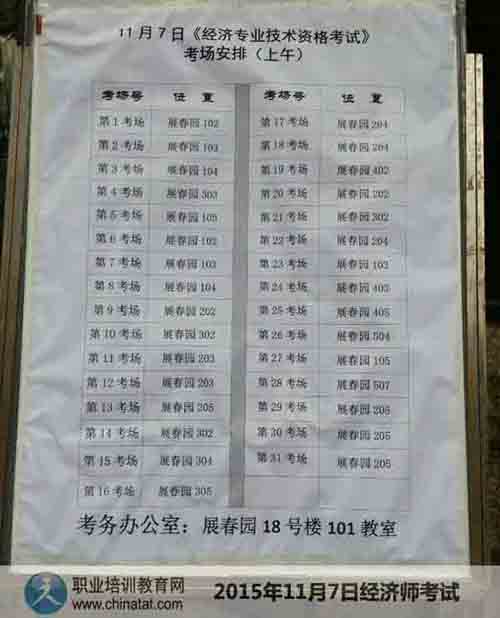 11月7日《经济专业技术资格考试》
考场安排（上午）
考场号 位 置 考场号 位 置
第1考场 展春园102 第17考场 展春园204
第2考场 展春园103 第18考场 展春园204
第3考场 展春园104 第19考场 展春园402
第4考场 展春园303 第20考场 展春园202
第5考场 展春园105 第21考场 展春园302
第6考场 展春园102 第22考场 展春园204
第7考场 展春园103 第23考场 展春园103
第8考场 展春园104 第24考场 展春园403
第9考场 展春园202 第25考场 展春园405
第10考场 展春园302 第26考场 展春园504
第11考场 展春园203 第27考场 展春园105
第12考场 展春园203 第28考场 展春园507
第13考场 展春园305 第29考场 展春园205
第14考场 展春园302 第30考场 展春园205
第15考场 展春园304 第31考场 展春园205
第16考场 展春园305
考务办公室：展春园18号楼101教室
职业培训教育网
www.chinatat.com
2015年11月7日经济师考试